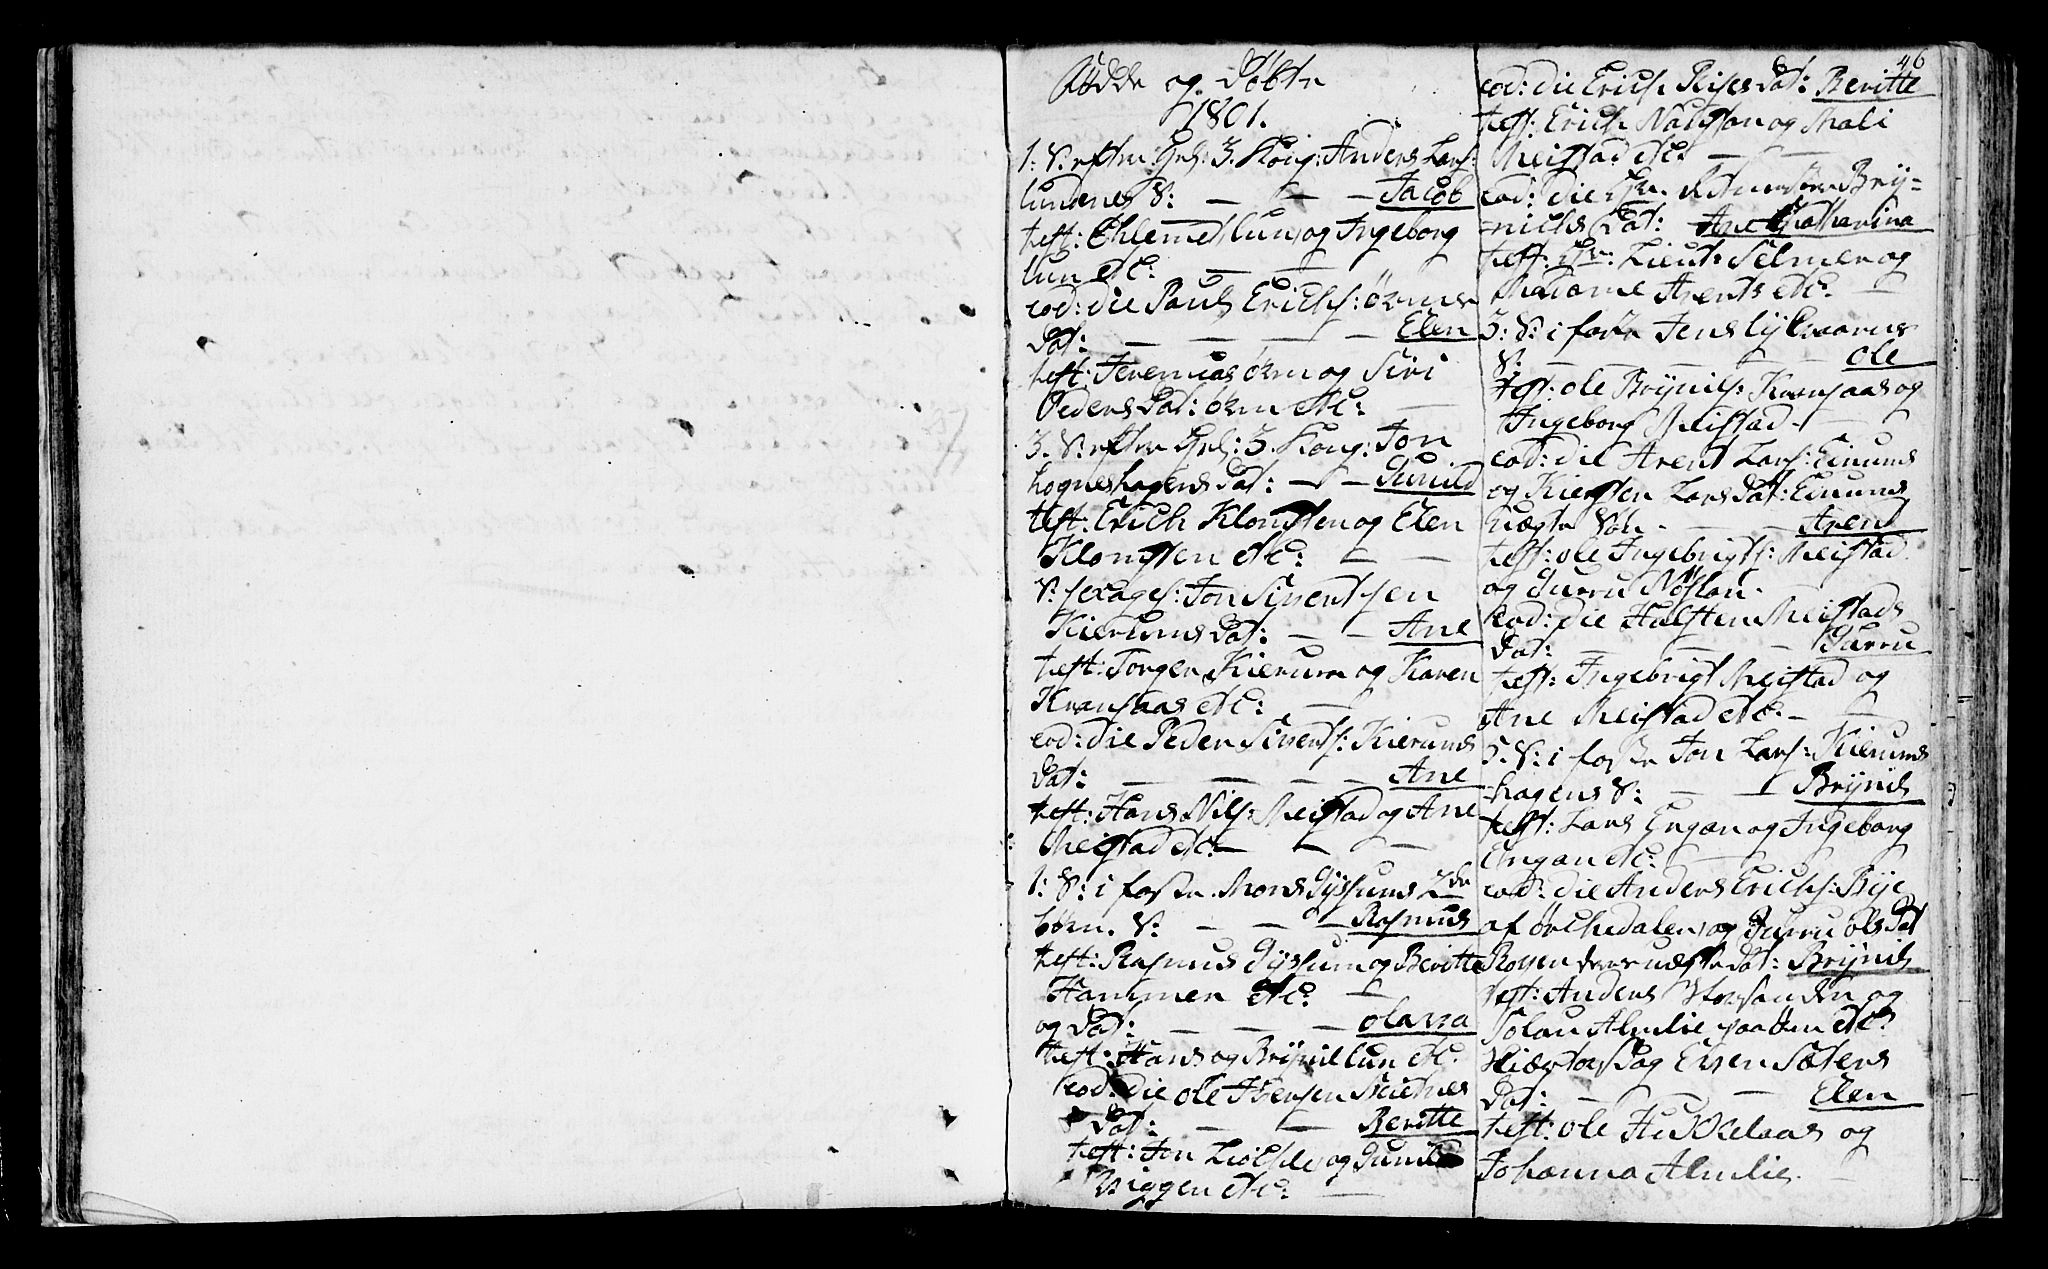 Födde og Döbte
1801.
1: S: efter Hel: 3. Kong: Anders Lars:
lundenes S: — — — Jacob
test: Chlemet lun og Ingeborg
lun etc: — —
eod: die Pauls Erichs: Örens
Dat: — — — — Elen
test: Jeremias ören og Siri
Peders Dat: ören etc: —
3. S: efter Hel: 3. Kong: Jon
hogneshagens Dat: — — Gunild
test: Erich Klongsten og Elen
Klongsten etc: — —
S: sexages: Jon Sivertsen
Kierums Dat: — — Ane
test: Torger Kierum og Karen
Kransaas etc: —
eod: die Peder Siverts: Kierums
Dat: — — — — Ane
test: Hans Nils: Meistad og Ane
Meistad etc: — — —
1: S: i faste Mons Gyssums 2de
börn. S: — — — Rasmus
test: Rasmus Gyssum og Beritte
Hammer etc: —
og Dat: — — — olava
test: Hans og Brynil lun etc.
eod: die ole Iversen Skietnes
Dat: — — Beritte
test: Jon Liöchle og Gunild
Viggen etc: —
46
eod: die Erich Rises Dat: Beritte
test: Erich Nöistan og Mali
Meistad etc. — —
eod: die Hr. Bry=
nichs Dat: Ane Catharina
test: Hr: Lieut: Selmer og
Madame Arents etc. —
3: S: i faste Jens lykraarens
S: — — — — ole
test: ole Brynils: Kransaas og
Ingeborg Meistad. —
eod: die Arent Lars: Einums
og Kiersten Lars Dat: Einums
Uægte Sön. — — Arent
test: ole Ingebrigts: Meistad
og Gurru Nöstan.
eod: die Halsten Meistads
Dat: — — — Gurru
test: Ingebrigt Meistad og
Ane Meistad etc. — —
5. S: i faste Jon Lars: Kierums
hagens S: — — Brynil
test: Lars Engan og Ingeborg
Engan etc: —
eod: die Anders Erichs: Bye
af örchedalen og Gurru Ols Dat
Rossen deres uægte Dat: Brynil
test: Anders Storsanden og
Solau Almlie etc:
og Even Sæters
Dat: — — — Elen
test: ole Hukkelaas og
Johanna Almlie. —